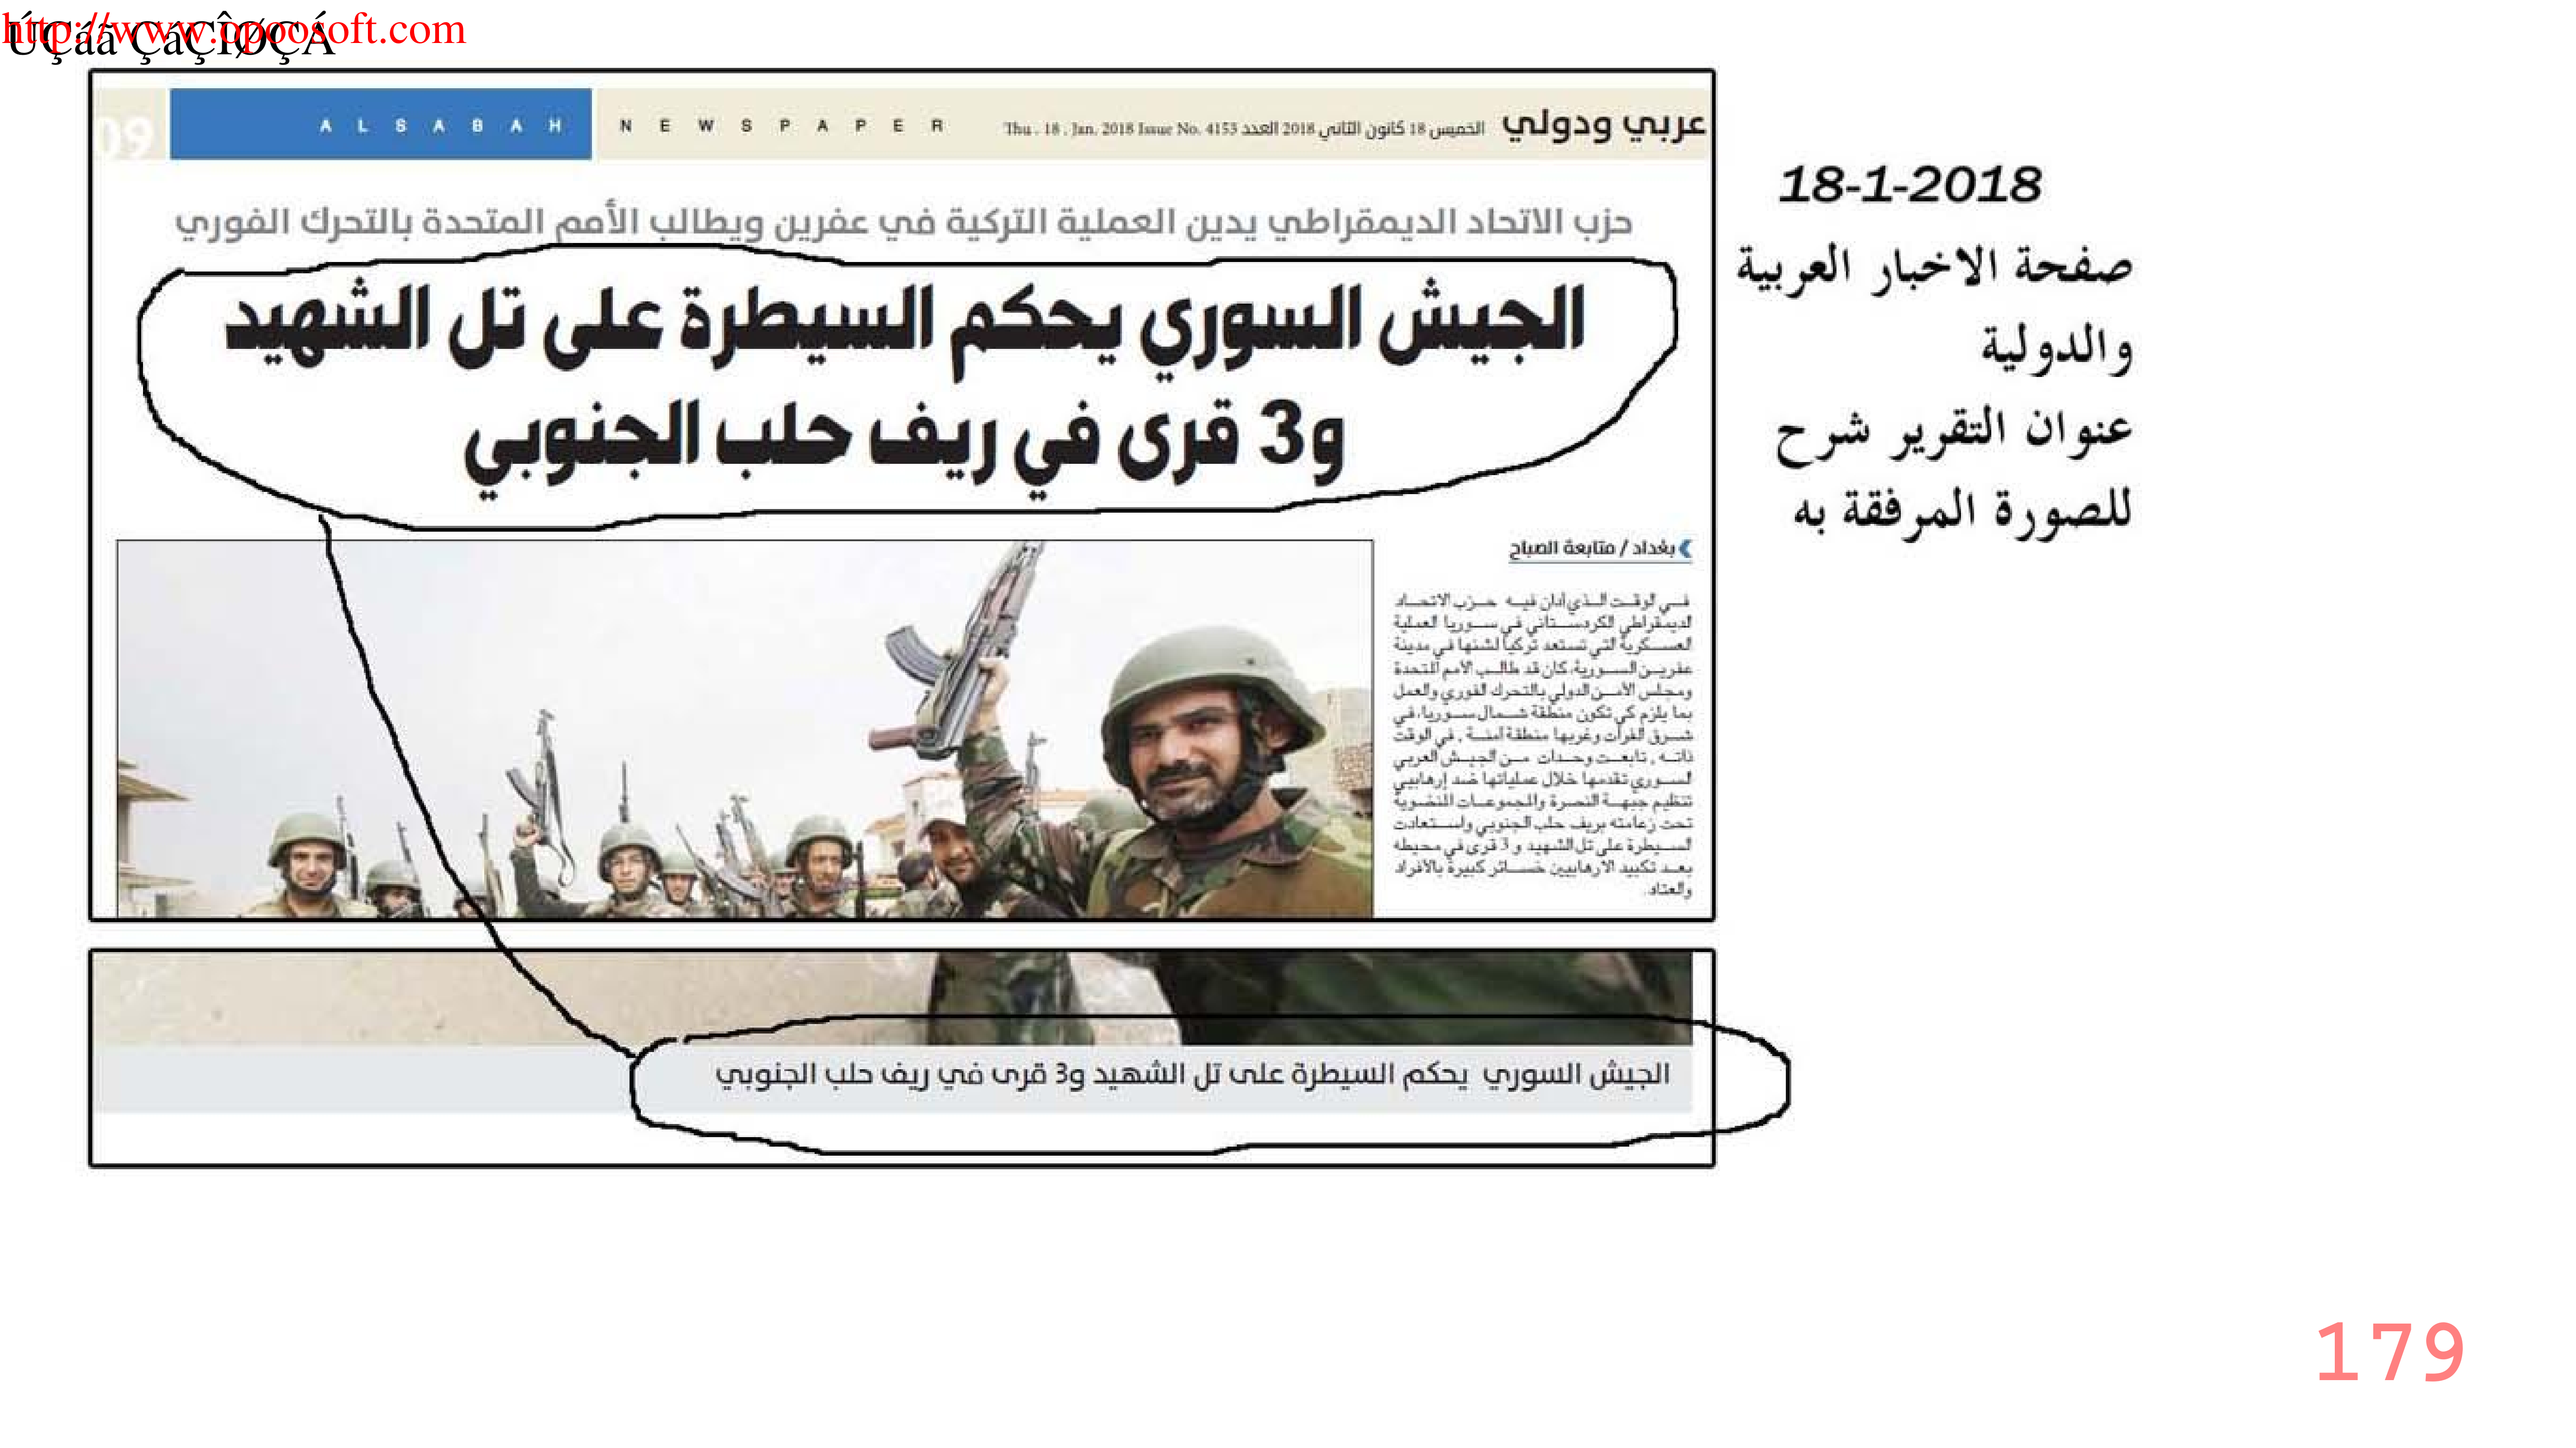 http://www.opoosoft.com
ÚÇáã ÇáÇÎØÇÁ
عربي ودولي الخميس 18 كانون الثاني 2018 العدد Thu . 18 . Jan. 2018 Issue No. 4153 NEWSPAPER ALSABAH 09
حزب الاتحاد الديمقراطي يدين العملية التركية في عفرين ويطالب الأمم المتحدة بالتحرك الفوري
الجيش السوري يحكم السيطرة على تل الشهيد
و3 قرى في ريف حلب الجنوبي
بغداد / متابعة الصباح
في الوقت الذي أدان فيه حزب الاتحاد
الديمقراطي الكردستاني في سوريا العملية
العسكرية التي تستعد تركيا لشنها في مدينة
عفرين السورية، كان قد طالب الأمم المتحدة
ومجلس الأمن الدولي بالتحرك الفوري والعمل
بما يلزم كي تكون منطقة شمال سوريا، في
شرق الفرات وغربها منطقة آمنة , في الوقت
ذاته , تابعت وحدات من الجيش العربي
السوري تقدمها خلال عملياتها ضد إرهابيي
تنظيم جبهة النصرة والمجموعات المنضوية
تحت زعامته بريف حلب الجنوبي واستعادت
السيطرة على تل الشهيد و 3 قرى في محيطه
بعد تكبيد الارهابيين خسائر كبيرة بالأفراد
والعتاد.
الجيش السوري يحكم السيطرة على تل الشهيد و3 قرى في ريف حلب الجنوبي
18-1-2018
صفحة الاخبار العربية
والدولية
عنوان التقرير شرح
للصورة المرفقة به
179